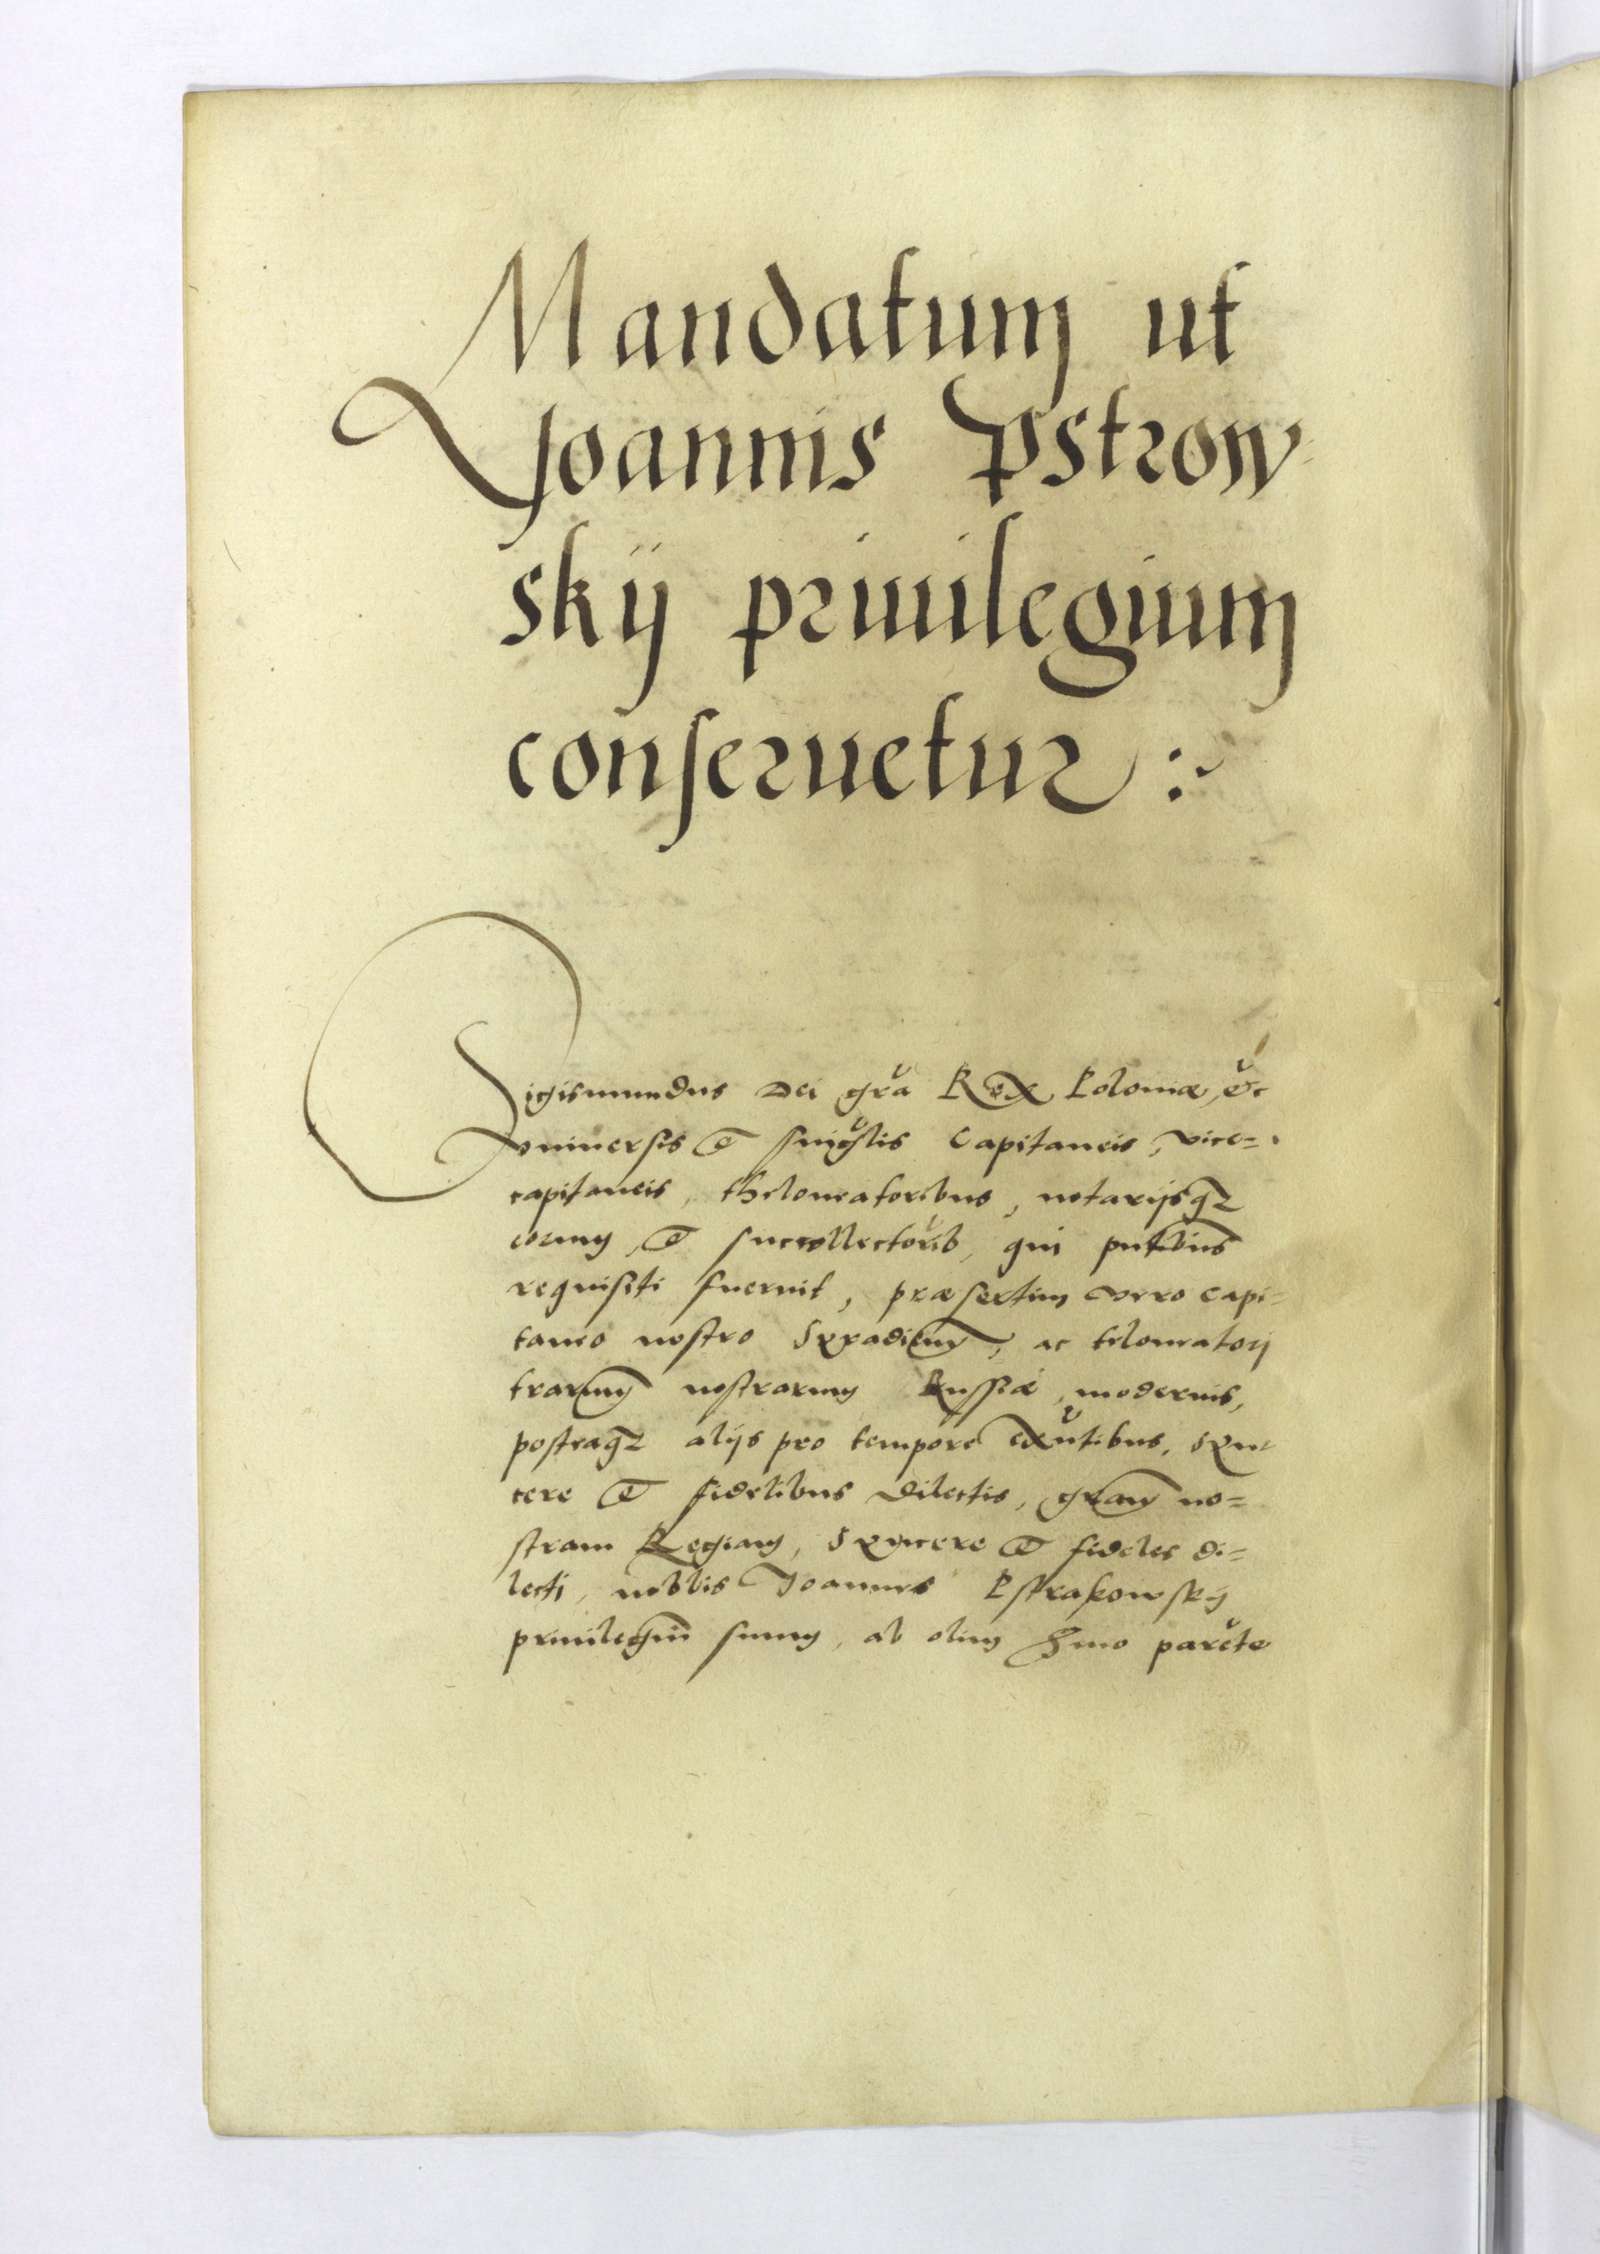 Mandatum ut
Joannis Pstrow-
skij priuilegium
conseruetur :
Sigismundus Dei gra Rex Poloniæ, &c
vniuersis et singlis Capitaneis, vice=
capitaneis, theloneatoribus, notarijsq3
eorum, et succollectorib, qui pntibus
requisiti fuerint, præsertim vero Capi=
taneo nostro Siradien, ac teloneatorj
trarum nostrarum Russiæ, modernis,
posteaq3 alijs pro tempore exntibus, syn
cere et fidelibus dilectis, gram no=
stram Regiam, Syncere et fideles di=
lecti, noblis Joannes Pstrakowskij
priuilegiu suum, ab olim Smo parete